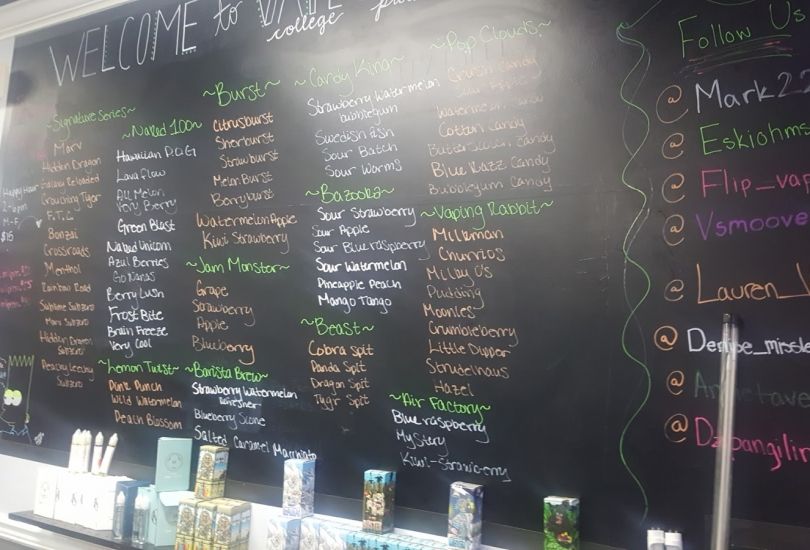 WELCOME to VAPE
college
~Signature Series~
Marv
Hidden Dragon
Reloaded
Crouching Tiger
F.T.C
Bonzai
Crossroads
Menthol
Rainbow Road
Sublime Subzero
Mars Subzero
Hidden Dragon
Subzero
Peachy Leechy
Subzero
Happy Hour
M-F
$15
~Naked 100~
Hawaiian P.O.G
Lava flow
All Melon
Very Berry
Green Blast
Naked Unicorn
Azul Berries
Go Nanas
Berry Lush
Frost Bite
Brain Freeze
Very Cool
~Lemon Twist~
Punch
Wild Watermelon
Peach Blossom
~Burst~
Citrusburst
Sherburst
Strawburst
Melon Burst
Berryburst
Watermelon Apple
Kiwi Strawberry
~Jam Monster~
Grape
Strawberry
Apple
Blueberry
~Barista Brew~
Strawberry Watermelon
Refresher
Blueberry Scone
Salted Caramel Macchiato
~Candy King~
Strawberry Watermelon
bubblegum
Swedish
Sour Batch
Sour Worms
~Bazooka~
Sour Strawberry
Sour Apple
Sour Blue raspberry
Sour Watermelon
Pineapple Peach
Mango Tango
~Beast~
Cobra Spit
Panda Spit
Dragon Spit
Tiger Spit
~Pop Clouds~
Candy
Watermelon Candy
Cotton Candy
Butterscotch Candy
Blue Razz Candy
Bubblegum Candy
~Vaping Rabbit~
Milkman
Churrios
Milky Os
Pudding
Moonies
Crumbleberry
Little Dipper
Strudelhaus
Hazel
~Air Factory~
Blue raspberry
Mystery
Kiwi-Strawberry
Follow Us
@ Mark22
@ Eskiohms
@ Flip_vap
@ Vsmoove
@ Lauren_
@ Denise_missle
@
@